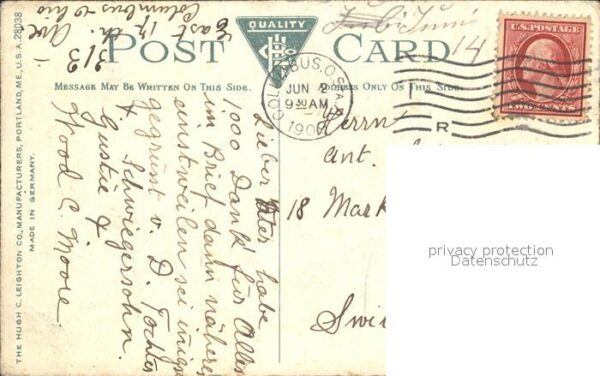 313
East 17 th. Ave
Columbus Ohio
QUALITY
POST CARD
MESSAGE MAY BE WRITTEN ON THIS SIDE.
ADDRESS ONLY ON THIS SIDE.
U.S.POSTAGE
TWO CENTS
14
COLUMBUS, O.
JUN 2
9 30 AM
190
Lieber Vater habe
1000 Dank für Alles
im Brief dann näheres
einstweilen sei innigst
gegrüsst v. D. Tochter
& Schwiegersohn.
Gustie &
Wood C. Moore
Herrn
Ant.
18 Mark
Swi
privacy protection
Datenschutz
THE HUGH C. LEIGHTON CO., MANUFACTURERS, PORTLAND, ME., U.S.A. 28038
MADE IN GERMANY.